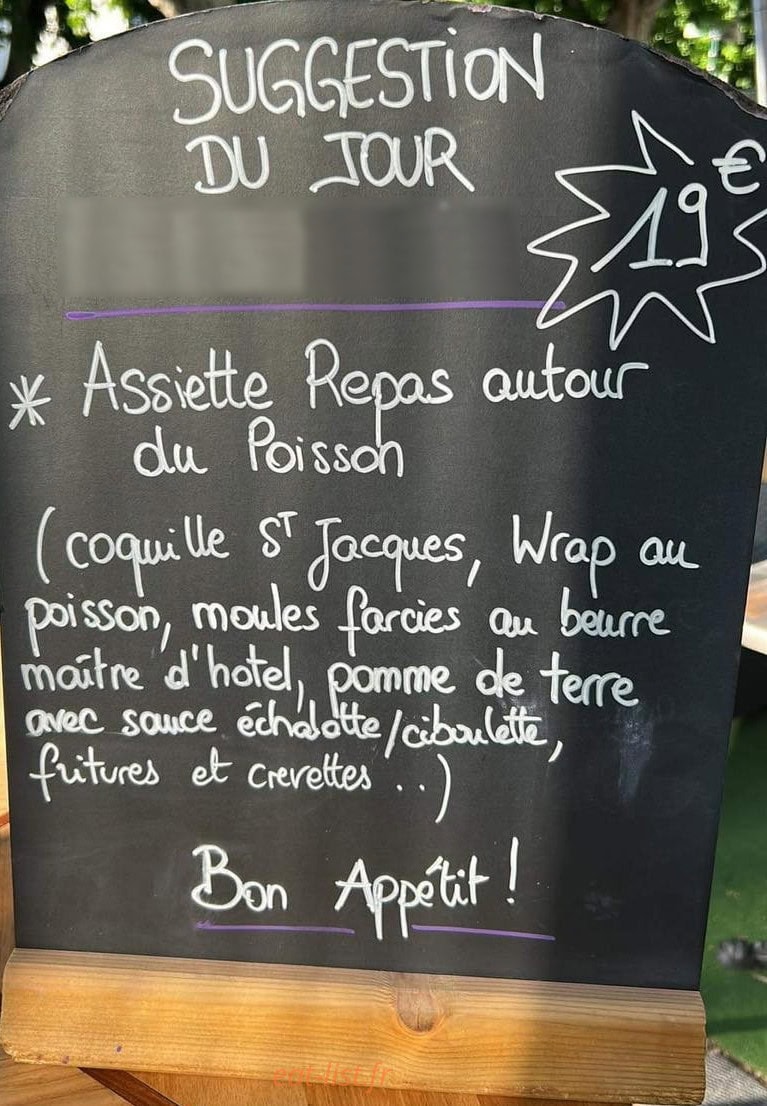 SUGGESTION
DU JOUR
19€
* Assiette Repas autour
du Poisson
(coquille ST Jacques, Wrap au
poisson, moules farcies au beurre
maître d'hotel, pomme de terre
avec sauce échalotte/ciboulette,
fritures et crevettes ..)
Bon Appétit !
eat-list.fr